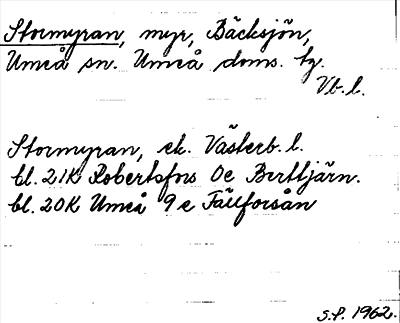 Stormyran, myr, Bäcksjön,
Umeå sn. Umeå doms. tg.
Vb. l.
Stormyran, ek. Västerb. l.
bl. 21K Robertsfors 0e Bertltjärn.
bl. 20K Umeå 9e Fällforsån
S.P. 1962.